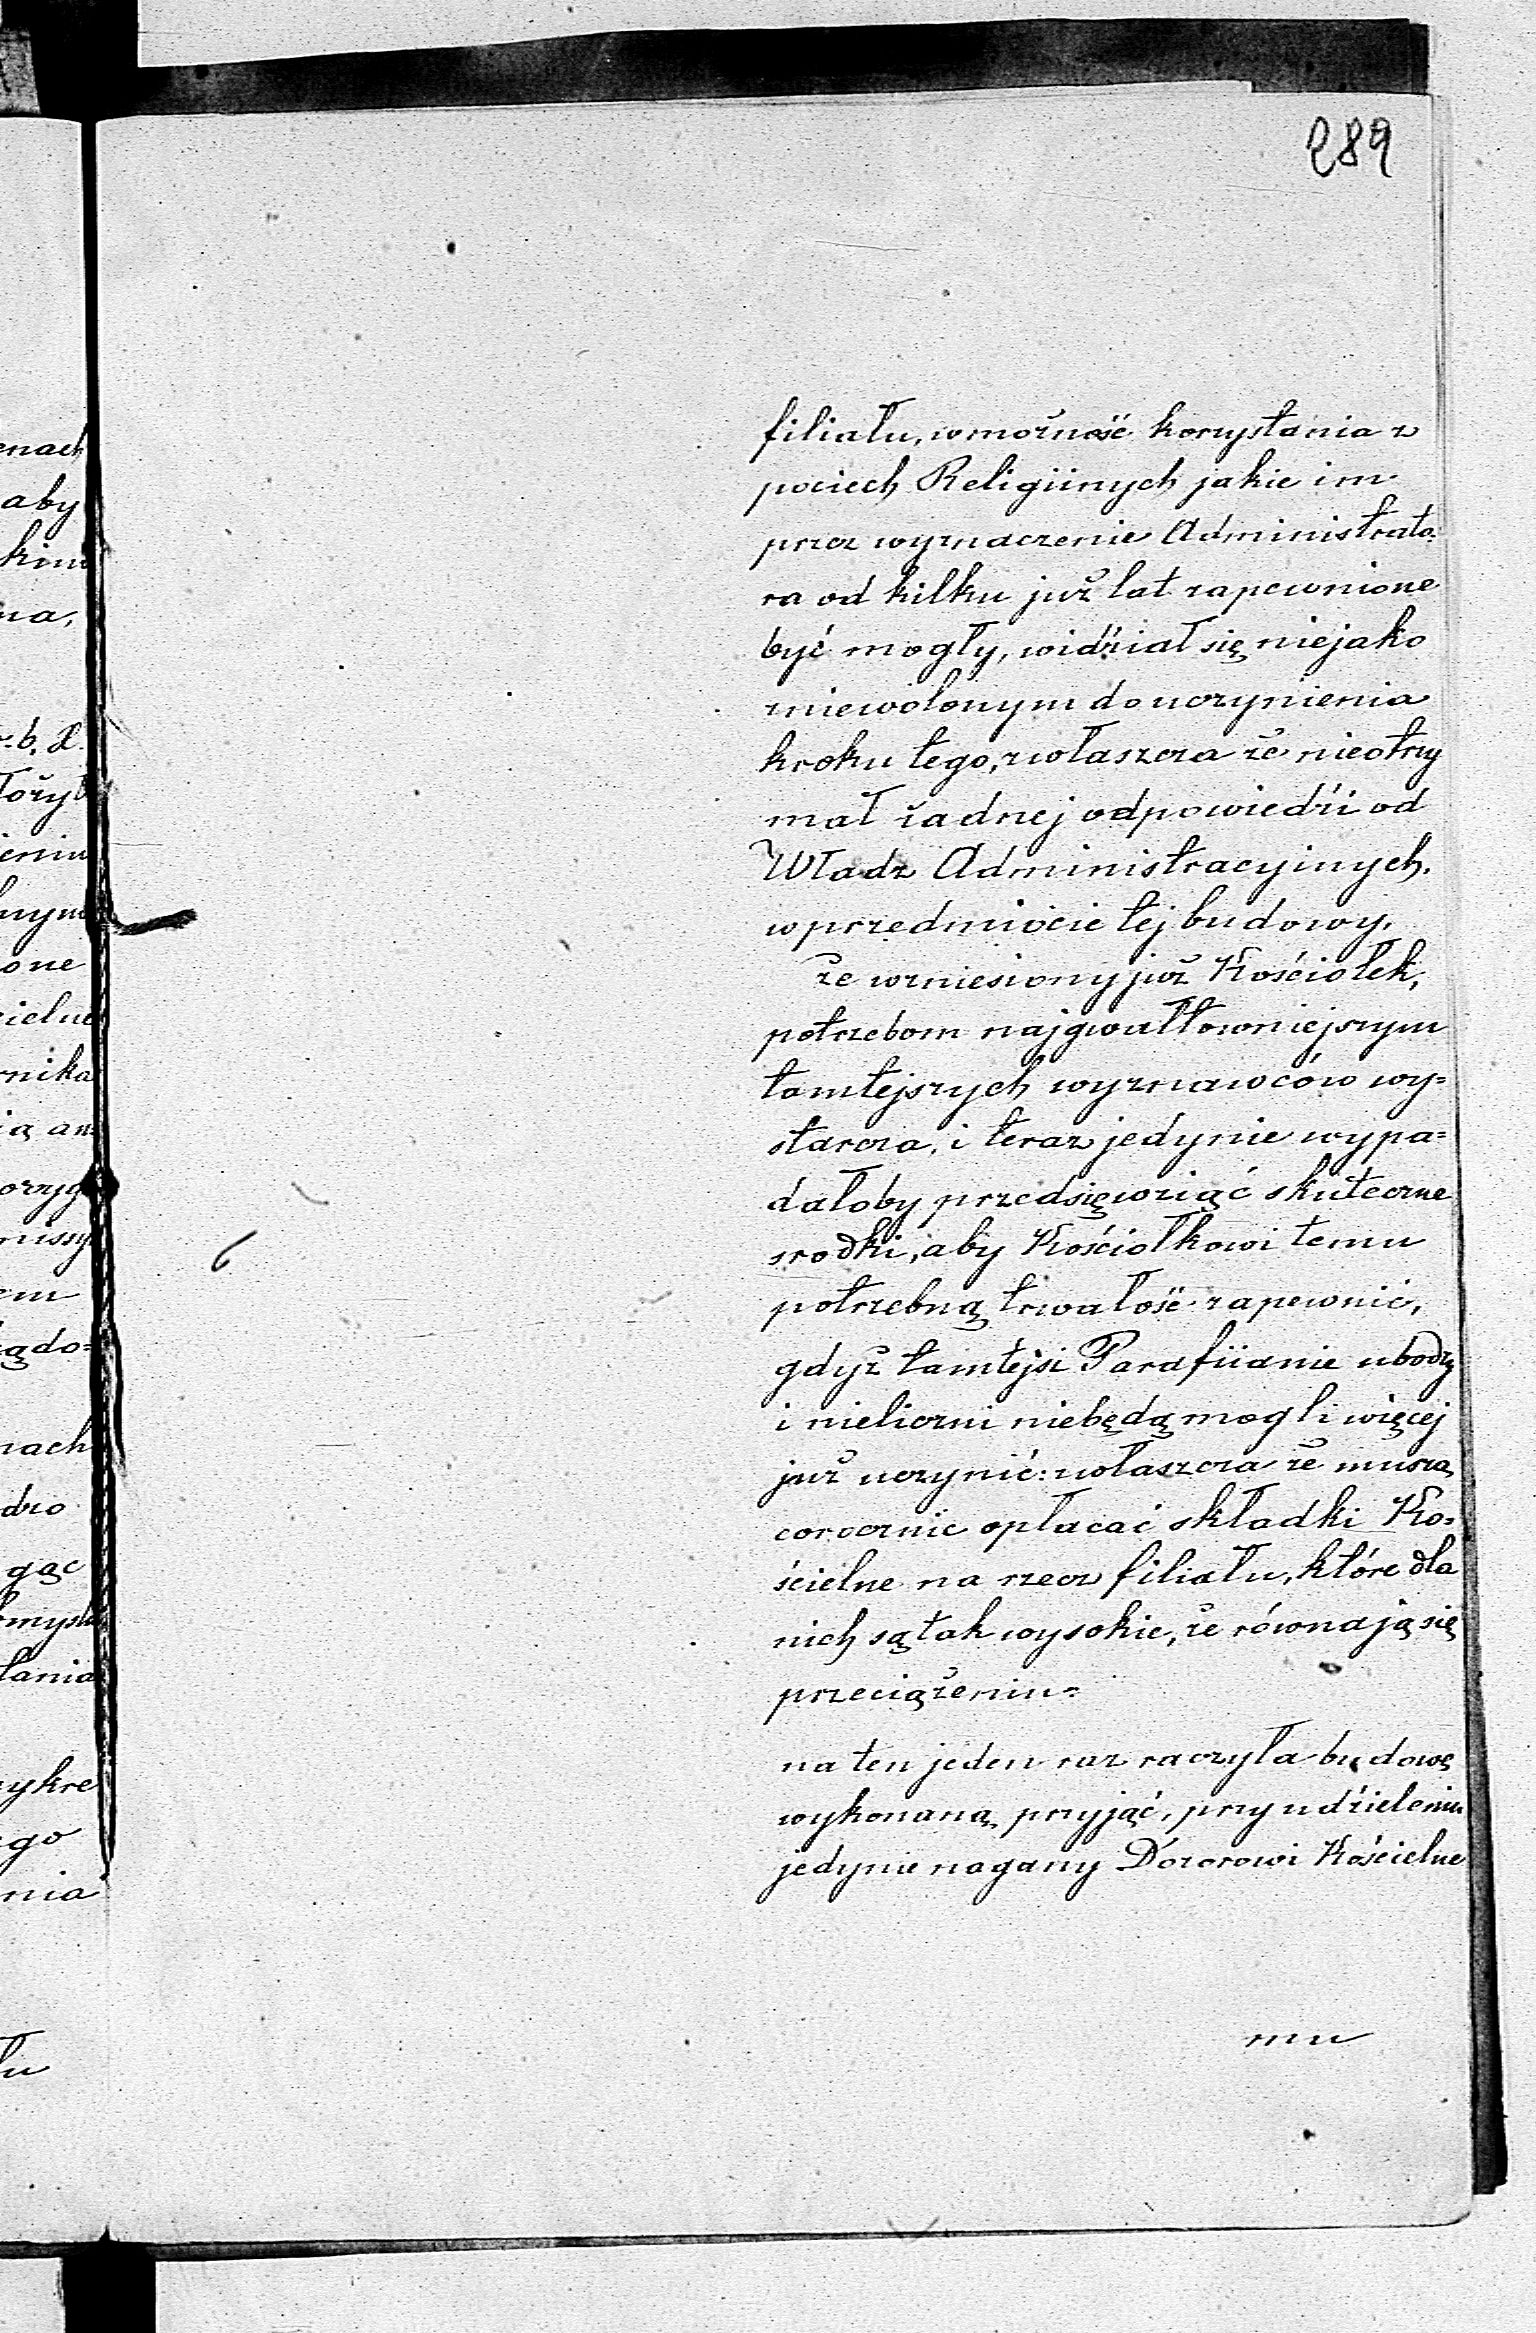 289
filiału, w możność korzystania z
pociech Religiinych jakie im
przez wyznaczenie Administrato=
ra od kilku już lat zapewnione
być mogły, widział się niejako
zniewolonym do uczynienia
kroku tego, zwłaszcza że nieotrzy
mał żadnej odpowiedzi od
Władz Administracyinych.
w przedmiocie tej budowy.
że wzniesiony już Kościołek,
potrzebom najgwałtowniejszym
tamtejszych wyznawców wy=
starcza, i teraz jedynie wypa=
dałoby przedsięwziąć skuteczne
srodki, aby Kościołkowi temu
potrzebną trwałość zapewnić,
gdyż tamtejsi Parafiianie ubodzy
i nieliczni niebędą mogli więcej
już uczynić: zwłaszcza że muszą
corocznie opłacać składki Ko=
ścielne na rzecz filiału, które dla
nich są tak wysokie, że równają się
przeciążeniu=
na ten jeden raz raczyła budowę
wykonaną przyjąć, przy udzieleniu
jedynie nagany Dozorowi Kościelne
mu